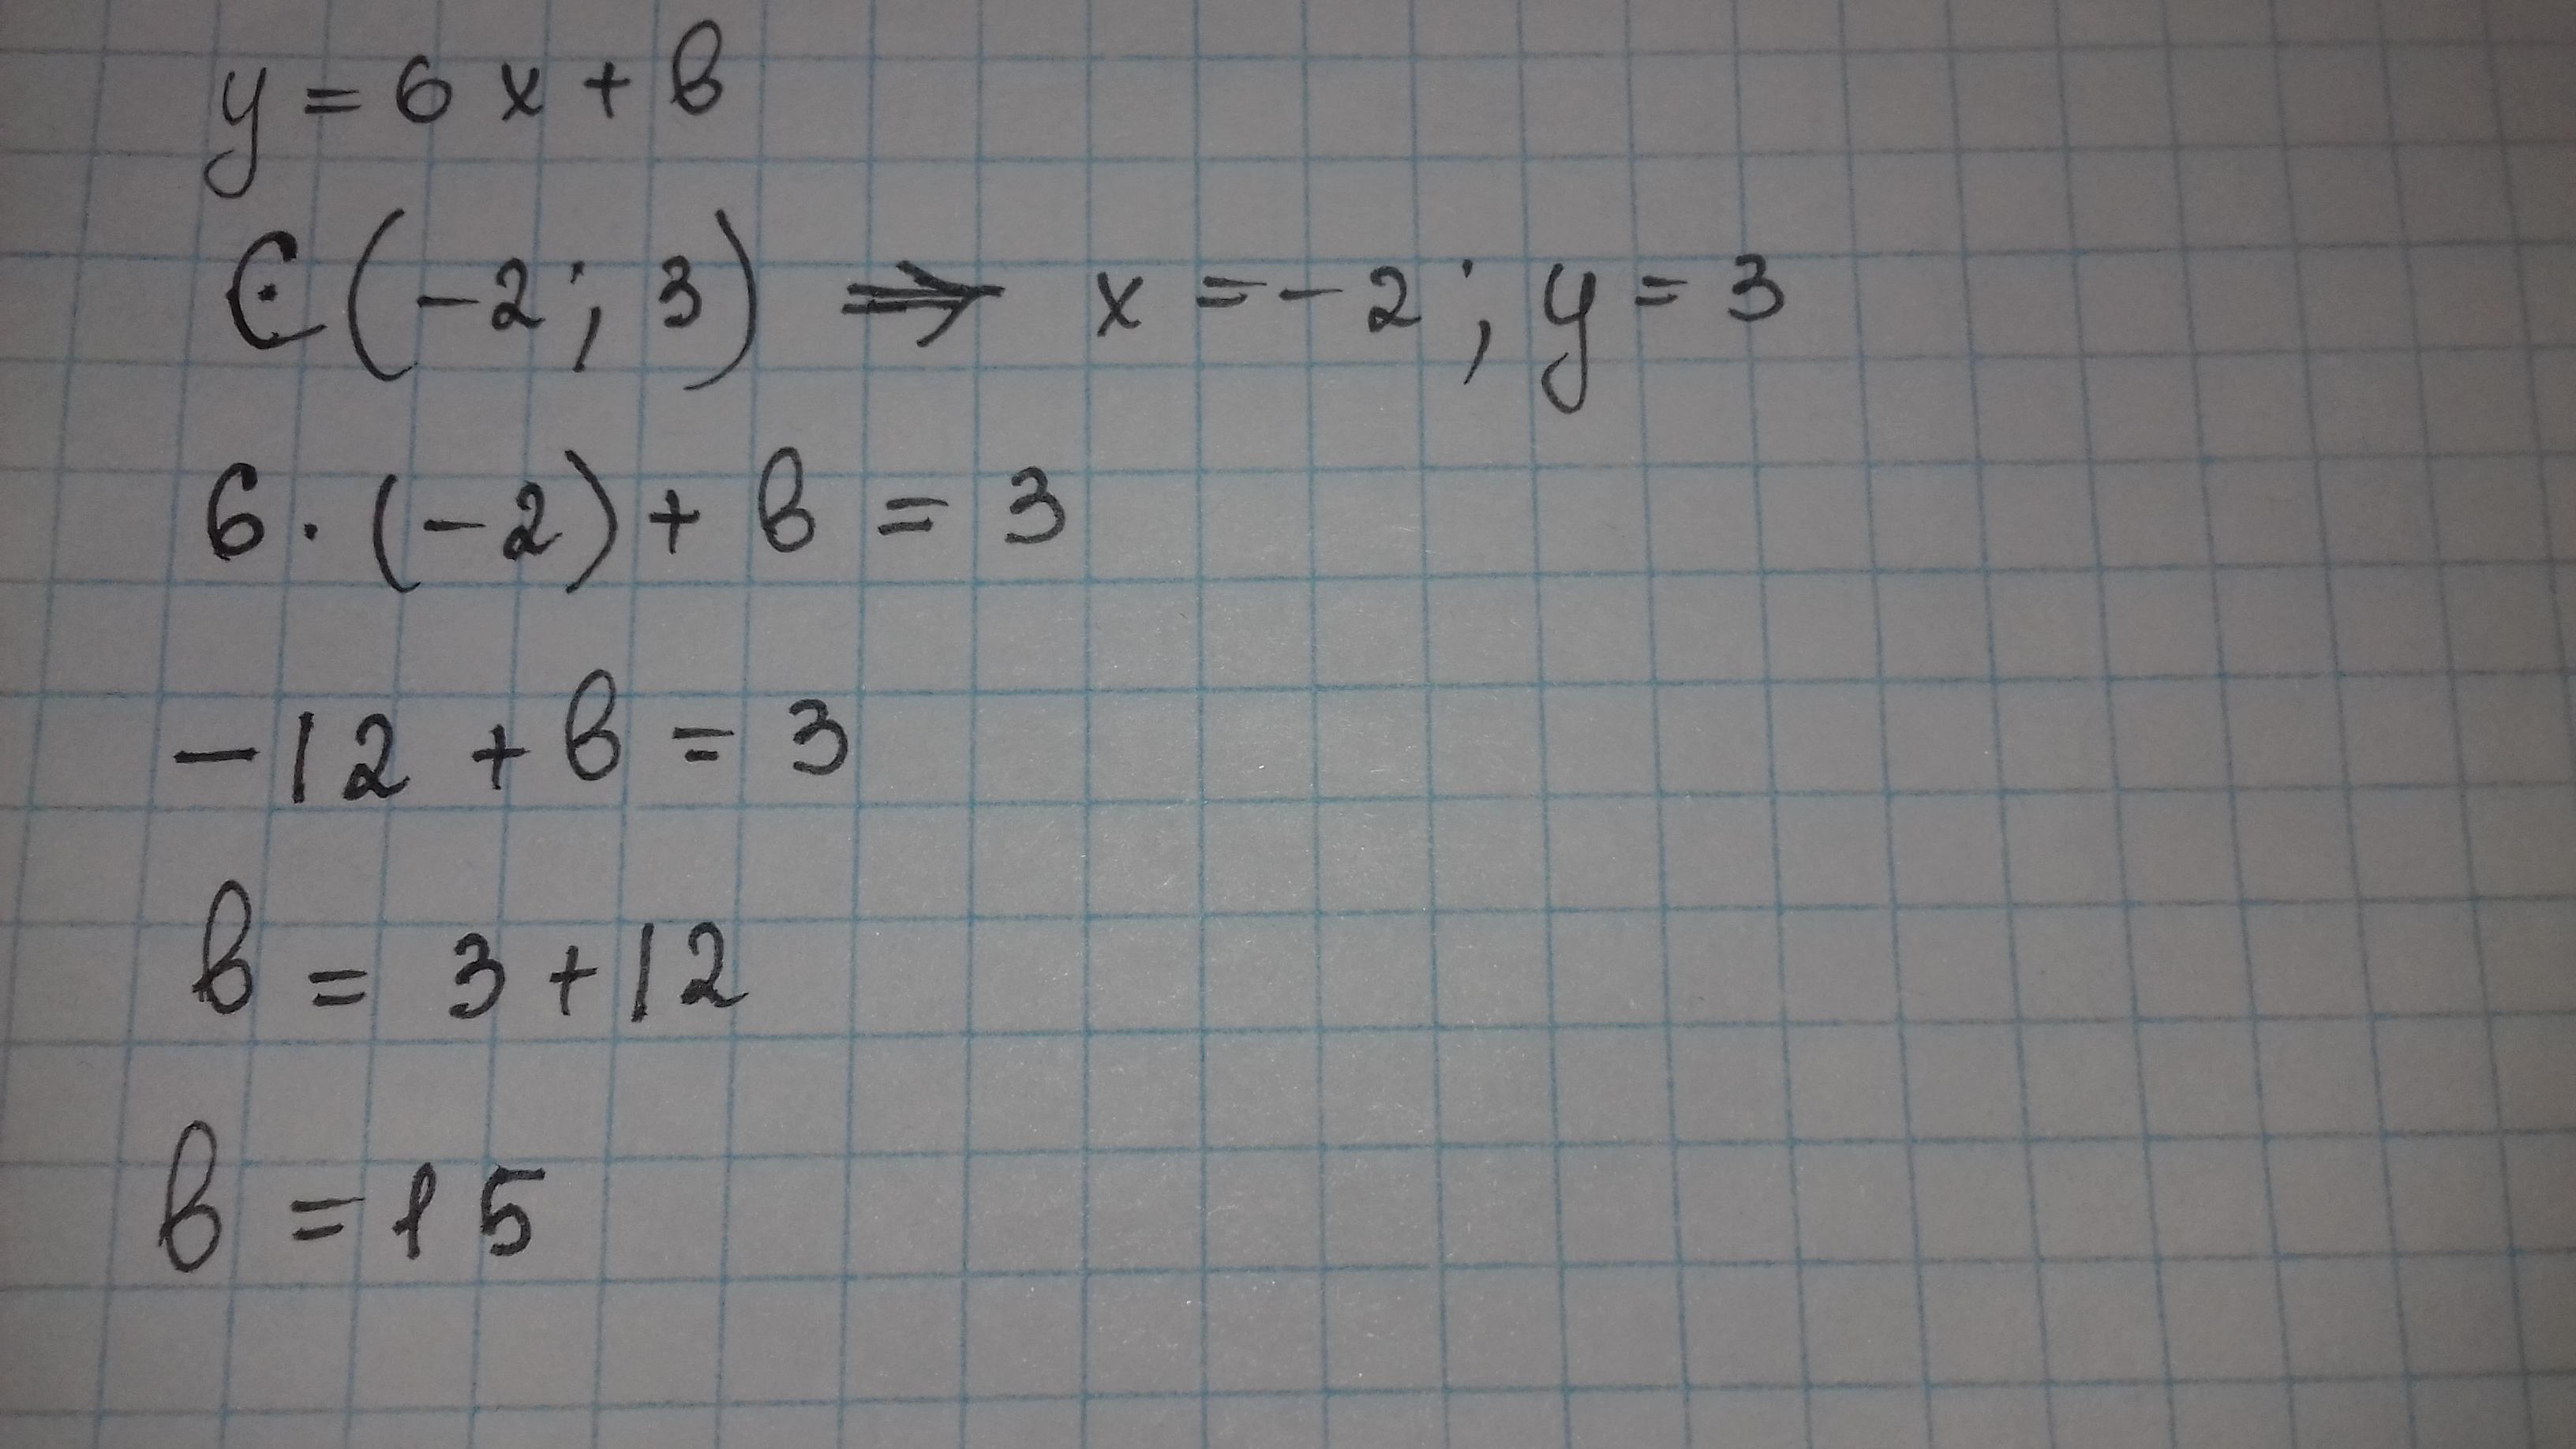 y = 6x + b
C (-2; 3) ⇒ x = -2; y = 3
6 · (-2) + b = 3
-12 + b = 3
b = 3 + 12
b = 15